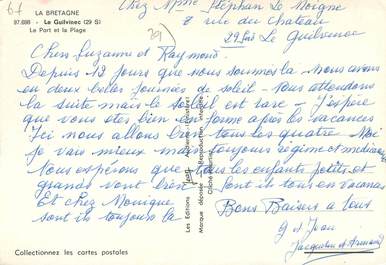 67
LA BRETAGNE
97.698 - Le Guilvinec (29 S)
Le Port et la Plage
29)
Chez Mme Stéphan Le Moigne
7 rue du Chateau
29 Sud Le Guilvenec
Chers Suzanne et Raymond.
Depuis 12 jours que nous sommes là nous avons
eu deux belles journées de soleil - nous attendons
la suite mais le soleil est rare - J'espère
que vous êtes bien en forme après les vacances
Ici nous allons bien tous les quatre Moi
je vais mieux mais toujours régime et
Nous espérons que tous les enfants petits et
grands vont bien sont ils tous en vacances
Et chez Monique
sont ils toujours là
Bons Baisers à tous
et Jean
Jacqueline et Armand
Les Editions
Marque déposée - Reproduction interdite
Collectionnez les cartes postales